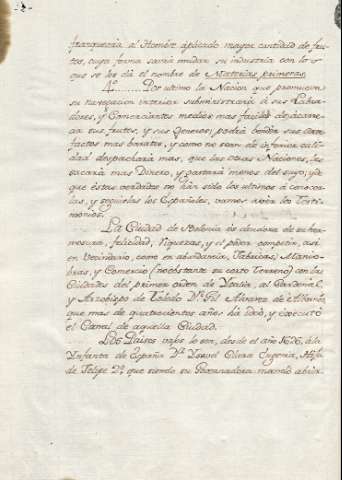 franquearia al Hombre aplicado mayor cantidad de fru-
tos, cuya forma savria mudar su industria con lo q.e
que se les dá el nombre de Materias primeras
4.º Por ultimo la Nacion que promueva
su navegacion interior subministrará á sus Labra-
dores, y Comerciantes medios mas faciles de acarre-
ar sus frutos, y sus generos; podrá vender sus Arte-
factos mas baratos, y como no sean de inferior cali-
dad despachará mas, que las otras Naciones,
sacará mas Dinero, y gastará menos del suyo, y de
que éstas verdades no han sido los ultimos á conocer-
las, y seguirlas los Españoles, vamos á ver los Testi-
monios.
La Ciudad de Bolonia es deudora de su her-
mosura, felicidad, riquezas, y el poder competir, asi
en Vecindario, como en abundancia, Fabricas, Manio-
bras, y Comercio (no obstante su corto Terreno) con las
Ciudades del primer orden de Italia, al Cardenal,
y Arzobispo de Toledo D.n Gil Alvarez de Albornoz,
que mas de quatrocientos años há ideó, y executó
el Canal de aquella Ciudad.
Los Paises vajos lo son, desde el año 1626, á la
Infanta de España D.a Ysavel Clara Eugenia, Hija
de Felipe 2.º que siendo su Governadora mandó abrir